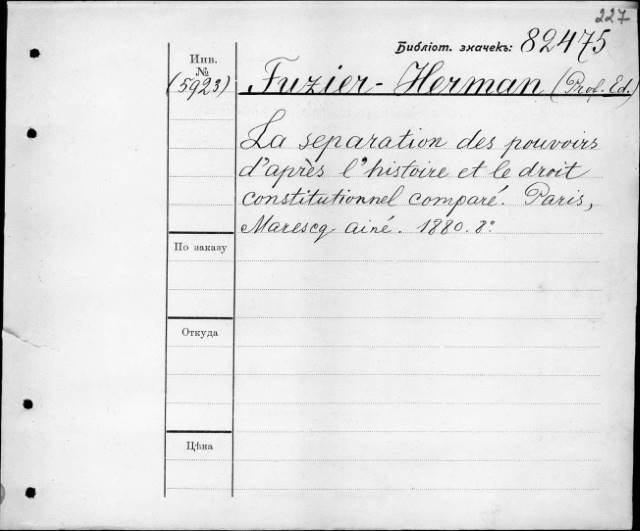 227
Библіот. значекъ: 82475
Инв.
№
(5923)
Fuzier-Herman (Prof. Ed.)
La separation des pouvoirs
d'après l'histoire et le droit
constitutionnel comparé. Paris,
Marescq ainé. 1880. 8º
По заказу
Откуда
Цѣна